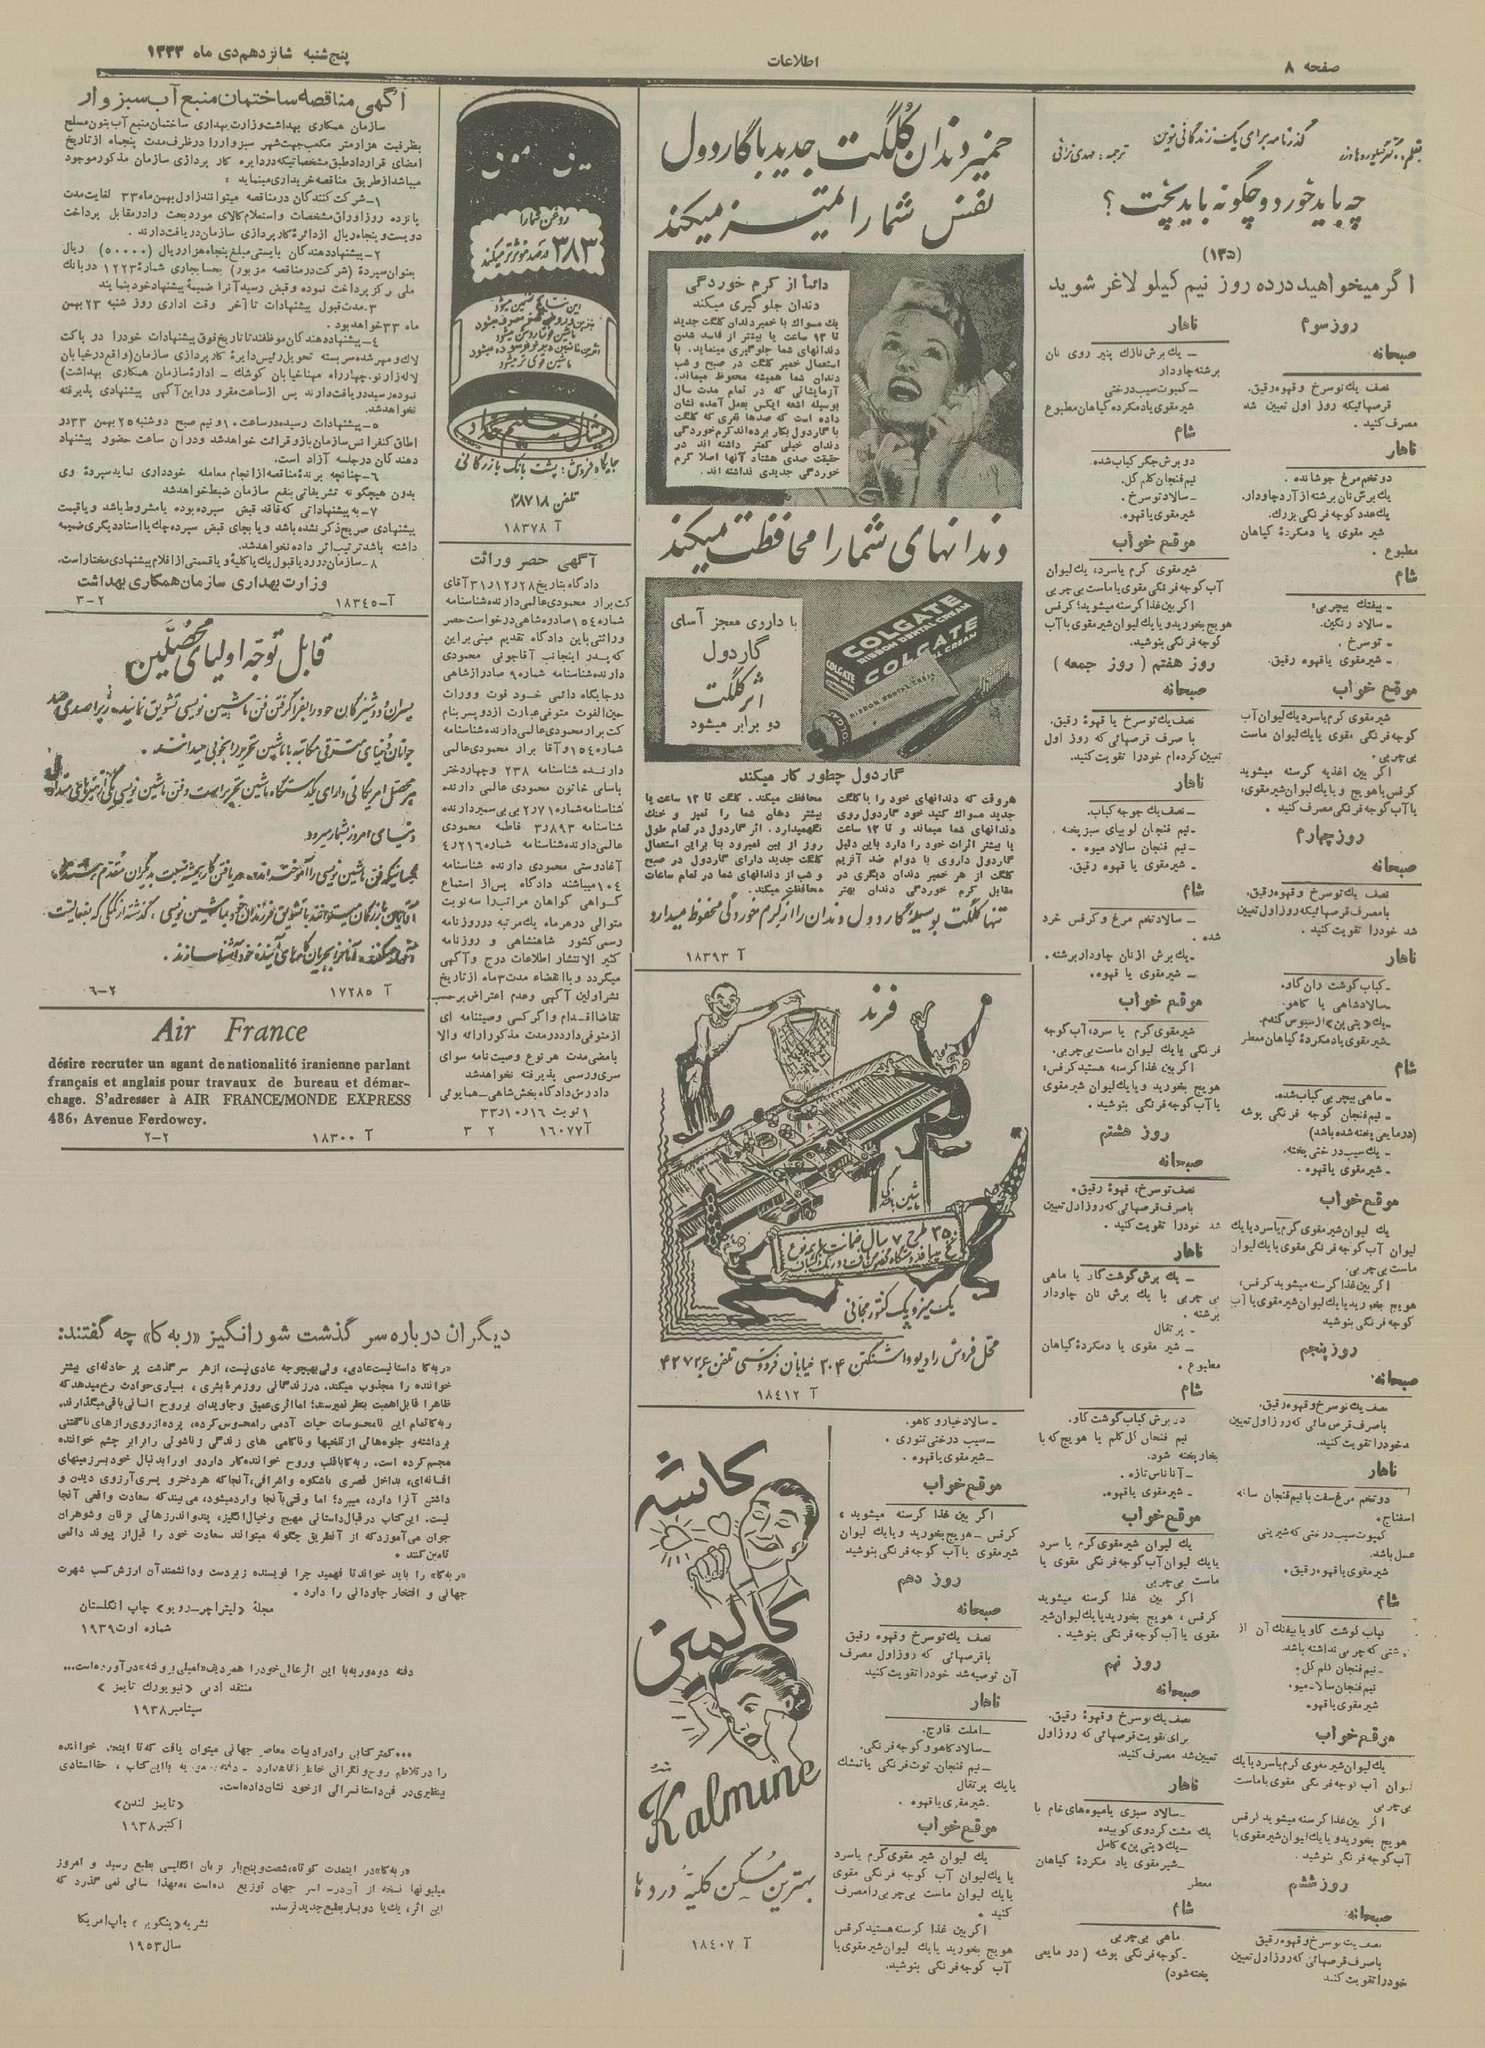 صفحه ۸
اطلاعات
پنج‌شنبه شانزدهم دی ماه ۱۳۳۳
گذرنامه برای یک زندگانی نوین
چه باید خورد و چگونه باید پخت ؟
(۱۳۵)
اگر میخواهید درده روز نیم کیلو لاغر شوید
روز سوم
صبحانه
نصف یك توسرخ و قهوه رقیق.
قرصهائیکه روز اول تعیین شد
مصرف کنید .
ناهار
دو تخم مرغ جوشانده .
یك برش نان برشته از آرد چاودار.
یك عدد گوجه فرنگی بزرگ.
شیر مقوی یا دم‌کردهٔ گیاهان
مطبوع .
شام
ـ بیفتك بیچربی:
ـ سالاد رنگین.
ـ توسرخ .
ـ شیر مقوی یا قهوه رقیق.
موقع خواب
شیر مقوی گرم یا سرد یك لیوان آب
گوجه فرنگی مقوی یا یك لیوان ماست
بی چربی.
اگر بین اغذیه گرسنه میشوید
کرفس یا هویج و یا یك لیوان شیرمقوی،
یا آب گوجه فرنگی مصرف کنید .
روز چهارم
صبحانه
نصف یك توسرخ و قهوه رقیق.
با مصرف قرصهائیکه روز اول تعیین
شد خود را تقویت کنید .
ناهار
ـ کباب گوشت ران گاو.
ـ سالادشاهی یا کاهو.
ـ یك «پتی پن» از سبوس گندم.
ـ شیر مقوی یا دم‌کردهٔ گیاهان معطر
شام
ـ ماهی بیچربی کباب‌شده.
ـ نیم فنجان گوجه فرنگی بوشه
(در مایعی پخته شده باشد)
ـ یك سیب درختی پخته.
ـ شیر مقوی یا قهوه .
موقع خواب
یك لیوان شیر مقوی گرم یا سرد یا یك
لیوان آب گوجه فرنگی مقوی یا یك لیوان
ماست بی چربی.
اگر بین غذا گرسنه میشوید کرفس،
هویج بخورید یا یك لیوان شیرمقوی یا آب
گوجه فرنگی بنوشید
روز پنجم
صبحانه
نصف یك توسرخ و قهوه رقیق.
با صرف قرص هائی که روز اول تعیین
خود را تقویت کنید.
ناهار
دو تخم مرغ سفت با نیم فنجان
اسفناج.
کمپوت سیب درختی که شیرینی
عسل باشد.
شیر مقوی یا قهوه رقیق .
شام
کباب گوشت گاو یا بیفتك آن از
که چربی نداشته باشد.
ـ نیم فنجان کلم گل .
شیر مقوی یا قهوه
موقع خواب
یك لیوان شیر مقوی گرم یا سرد یا یك
لیوان آب گوجه فرنگی مقوی یا ماست
بی چربی
اگر بین غذا گرسنه میشوید کرفس
هویج بخورید و یا یك لیوان شیر مقوی یا
آب گوجه فرنگی بنوشید .
روز ششم
صبحانه
نصف یك توسرخ و قهوه رقیق
با صرف قرصهائی که روز اول تعیین
خود را تقویت کنید
ناهار
ـ یك برش نازك پنیر روی نان
برشته چاودار
ـ کمپوت سیب درختی
شیر مقوی یا دم‌کرده گیاهان مطبوع
شام
دو برش جگر کباب شده.
نیم فنجان کلم گل.
ـ سالاد توسرخ .
شیر مقوی یا قهوه.
موقع خواب
شیر مقوی گرم یا سرد، یك لیوان
آب گوجه فرنگی مقوی یا ماست بی چربی
اگر بین غذا گرسنه میشوید؛ کرفس
هویج بخورید و یا یك لیوان شیر مقوی یا آب
گوجه فرنگی بنوشید.
روز هفتم ( روز جمعه )
صبحانه
نصف یك توسرخ یا قهوه رقیق.
با صرف قرصهائی که روز اول
تعیین کرده‌ام خود را تقویت کنید.
ناهار
ـ نصف یك جوجه کباب.
ـ نیم فنجان لوبیای سبز پخته .
ـ نیم فنجان سالاد میوه .
ـ شیر مقوی یا قهوه رقیق.
شام
ـ سالاد تخم مرغ و کرفس خرد
شده .
ـ یك برش از نان چاودار برشته.
ـ شیر مقوی یا قهوه.
موقع خواب
شیر مقوی گرم یا سرد، آب گوجه
فرنگی یا یك لیوان ماست بی چربی.
اگر بین غذا گرسنه هستید کرفس،
هویج بخورید و یا یك لیوان شیر مقوی
یا آب گوجه فرنگی بنوشید .
روز هشتم
صبحانه
نصف توسرخ، قهوهٔ رقیق.
با صرف قرصهائی که روز اول تعیین
شد خود را تقویت کنید .
ناهار
ـ یك برش گوشت گاو یا ماهی
بی چربی با یك برش نان چاودار
برشته .
ـ پرتقال
ـ شیر مقوی یا دم‌کردهٔ گیاهان
مطبوع .
شام
دو برش کباب گوشت گاو.
نیم فنجان گل کلم یا هویج که با
بخار پخته شود.
ـ آناناس تازه .
ـ شیر مقوی یا قهوه.
موقع خواب
یك لیوان شیر مقوی گرم یا سرد
یا یك لیوان آب گوجه فرنگی مقوی یا
ماست بی چربی
اگر بین غذا گرسنه میشوید
کرفس ، هویج بخورید یا یك لیوان شیر
مقوی یا آب گوجه فرنگی بنوشید .
روز نهم
صبحانه
نصف یك توسرخ و قهوهٔ رقیق.
برای تقویت قرصهائی که روز اول
تعیین شد مصرف کنید.
ناهار
ـ سالاد سبزی یا میوه‌های خام با
یك مشت گردوی کوبیده
ـ یك «پتی پن» کامل
ـ شیر مقوی یا دم‌کردهٔ گیاهان
معطر
شام
ماهی بی چربی
ـ گوجه فرنگی بوشه ( در مایعی
پخته شود)
ـ سالاد خیار و کاهو.
ـ سیب درختی تنوری .
ـ شیر مقوی یا قهوه .
موقع خواب
اگر بین غذا گرسنه میشوید ،
کرفس ـ هویج بخورید و یا یك لیوان
شیر مقوی یا آب گوجه فرنگی بنوشید
روز دهم
صبحانه
نصف یك توسرخ و قهوه رقیق
با قرصهائی که روز اول مصرف
آن توصیه شد خود را تقویت کنید
ناهار
ـ املت قارچ.
ـ سالاد کاهو و گوجه فرنگی.
ـ نیم فنجان توت فرنگی یا تمشك
یا یك پرتقال
شیر مقوی یا قهوه .
موقع خواب
یك لیوان شیر مقوی گرم یا سرد
یا یك لیوان آب گوجه فرنگی مقوی
یا یك لیوان ماست بی چربی را مصرف
کنید .
اگر بین غذا گرسنه هستید کرفس
هویج بخورید یا یك لیوان شیر مقوی یا
آب گوجه فرنگی بنوشید.
خمیر دندان کلگت جدید با گاردول
نفس شما را تمیز میکند
دائماً از کرم خوردگی
دندان جلوگیری میکند
یك مسواك با خمیر دندان کلگت جدید
تا ۱۲ ساعت یا بیشتر از فاسد شدن
دندانهای شما جلوگیری مینماید. با
استعمال خمیر کلگت در صبح و شب
دندان شما همیشه محفوظ میماند.
آزمایشاتی که در تمام مدت سال
بوسیله اشعه ایکس بعمل آمده نشان
داده است که صدها نفری که کلگت
با گاردول بکار برده‌اند کرم خوردگی
دندان خیلی کمتر داشته اند در
حقیقت صدی هشتاد آنها اصلا کرم
خوردگی جدیدی نداشته اند .
دندانهای شما را محافظت میکند
با داروی معجز آسای
گاردول
اثر کلگت
دو برابر میشود
COLGATE
RIBBON DENTAL CREAM
COLGATE
گاردول چطور کار میکند
هروقت که دندانهای خود را با کلگت
جدید مسواك کنید خود گاردول روی
دندانهای شما میماند و تا ۱۲ ساعت
یا بیشتر اثرات خود را دارد باین دلیل
گاردول داروی با دوام ضد آنزیم
کلگت از هر خمیر دندان دیگری در
مقابل کرم خوردگی دندان بهتر
محافظت میکند . کلگت تا ۱۲ ساعت یا
بیشتر دهان شما را تمیز و خنك
نگهمیدارد. اثر گاردول در تمام طول
روز از بین نمیرود بنا براین استعمال
کلگت جدید دارای گاردول در صبح
و شب از دندانهای شما در تمام ساعات
محافظت میکند.
تنها کلگت بوسیلهٔ گاردول دندان را از کرم خوردگی محفوظ میدارد
آ ۱۸۳۹۳
فرند
ماشین بافندگی
یک میز و یک کنتور مجانی
محل فروش رادیو واشنگتن ۳۰۴ خیابان فردوسی تلفن ۴۲۷۳۶
آ ۱۸۴۱۲
کاشه
کالمین
Kalmine
بهترین مسکن کلیهٔ دردها
آ ۱۸۴۰۷
روغن شما را
۳۸۳ درصد مؤثرتر میکند
جایگاه فروش : پشت بانک بازرگانی
تلفن ۲۸۷۱۸
آ ۱۸۳۷۸
آگهی حصر وراثت
دادگاه بتاریخ ۳۱ر۱۲ر۲۸ آقای
شماره ۱۵۴ صادره شاهی درخواست حصر
وراثتی باین دادگاه تقدیم مبنی براین
که پدر اینجانب آقاجونی محمودی
دارنده شناسنامه شماره ۹ صادر از شاهی
در جایگاه دائمی خود فوت و وراث
حین‌الفوت متوفی عبارت از دو پسر بنام
شماره ۱۵۴ و آقا برار محمودی عالمی
دارنده شناسنامه ۲۳۸ و چهار دختر
باسامی خاتون محمودی عالمی دارنده
شناسنامه ۳ر۸۹۳ فاطمه محمودی
عالمی دارنده شناسنامه شماره ۴ر۲۱۶
۱۰۴ میباشند دادگاه پس از استماع
گواهی گواهان مراتب را سه نوبت
متوالی در هر ماه یك مرتبه در روزنامه
رسمی کشور شاهنشاهی و روزنامه
کثیر الانتشار اطلاعات درج و آگهی
میگردد و با انقضاء مدت ۳ ماه از تاریخ
نشر اولین آگهی و عدم اعتراض بر حسب
تقاضا اقدام و اگر کسی وصیتنامه ای
از متوفی دارد در مدت مذکور ارائه والا
با مضی مدت هر نوع وصیت نامه سوای
سری و رسمی پذیرفته نخواهد شد
دادرس دادگاه بخش شاهی ـ همایونی
۱ نوبت ۱۶ر۱۰ر۳۳
آ ۱۶۰۷۷ ۲ ۳
آگهی مناقصه ساختمان منبع آب سبزوار
سازمان همکاری بهداشت وزارت بهداری ساختمان منبع آب بتون مسلح
بظرفیت هزار متر مکعب جهت شهر سبزوار را در ظرف مدت پنجاه از تاریخ
امضای قرارداد طبق مشخصاتیکه در دایره کار پردازی سازمان مذکور موجود
میباشد از طریق مناقصه خریداری مینماید :
۱ـ شرکت کنندگان در مناقصه میتوانند از اول بهمن ماه ۳۳ لغایت مدت
پانزده روز اوراق مشخصات و استعلام کالای مورد بحث را در مقابل پرداخت
دویست و پنجاه ریال از دائرهٔ کار پردازی سازمان دریافت دارند .
۲ـ پیشنهاد دهندگان بایستی مبلغ پنجاه هزار ریال (۵۰۰۰۰) ریال
بعنوان سپردهٔ (شرکت در مناقصه مزبور) بحساب جاری شمارهٔ ۱۲۲۳ در بانك
ملی مرکز پرداخت نموده و قبض رسید آنرا ضمیمهٔ پیشنهاد خود بنمایند
۳ـ مدت قبول پیشنهادات تا آخر وقت اداری روز شنبه ۲۳ بهمن
ماه ۳۳ خواهد بود.
۴ـ پیشنهاد دهندگان موظفند تا تاریخ فوق پیشنهادات خود را در پاکت
لاك و مهر شده سربسته تحویل رئیس دایرهٔ کار پردازی سازمان (واقع در خیابان
لاله‌زار نو. چهارراه مهنا خیابان کوشك ـ ادارهٔ سازمان همکاری بهداشت)
نموده رسید دریافت دارند پس از ساعت مقرر در این آگهی پیشنهادی پذیرفته
نخواهد شد.
۵ـ پیشنهادات رسیده در ساعت ۱۰ و نیم صبح دوشنبه ۲۵ بهمن ۳۳ در
اطاق کنفرانس سازمان باز و قرائت خواهد شد و در آن ساعت حضور پیشنهاد
دهندگان در جلسه آزاد است.
۶ـ چنانچه برندهٔ مناقصه از انجام معامله خودداری نماید سپردهٔ وی
بدون هیچگونه تشریفاتی بنفع سازمان ضبط خواهد شد
۷ـ به پیشنهاداتی که فاقد قبض سپرده بوده یا مشروط باشد و یا قیمت
پیشنهادی صریح ذکر نشده باشد و یا بجای قبض سپرده چك یا اسناد دیگری ضمیمه
داشته باشد ترتیب اثر داده نخواهد شد.
۸ـ سازمان در رد یا قبول یك یا کلیه و یا قسمتی از اقلام پیشنهادی مختار است.
وزارت بهداری سازمان همکاری بهداشت
آـ ۱۸۳۴۵ ۲ـ۳
قابل توجه اولیای محصلین
دنیای امروز بشمار میرود
آ ۱۷۲۸۵ ۲ـ۶
Air France
désire recruter un agant de nationalité iranienne parlant
français et anglais pour travaux de bureau et démar-
chage. S'adresser à AIR FRANCE/MONDE EXPRESS
486, Avenue Ferdowcy.
آ ۱۸۳۰۰ ۲-۲
دیگران درباره سرگذشت شورانگیز «ربه‌کا» چه گفتند:
«ربه‌کا داستانیست عادی، ولی بهیچوجه عادی نیست، از هر سرگذشت پر حادثه‌ای بیشتر
خواننده را مجذوب میکند. در زندگانی روزمرهٔ بشری ، بسیاری حوادث رخ میدهد که
ظاهرا قابل اهمیت بنظر نمیرسند؛ اما اثری عمیق و جاویدان بر روح انسانی باقی میگذارند.
ربه‌کا تمام این نامحسوسات حیات آدمی را محسوس کرده، پرده از روی رازهای ناگفتنی
برداشته و جلوه‌هائی از تلخیها و ناکامی های زندگی زناشوئی را برابر چشم خواننده
مجسم کرده است. ربه‌کا با قلب و روح خواننده کار دارد و او را بدنبال خود بسرزمینهای
افسانه‌ای، بداخل قصری باشکوه و اشرافی، آنجا که هر دختر و پسری آرزوی دیدن و
داشتن آنرا دارد، میبرد؛ اما وقتی بآنجا وارد میشود، می‌بیند که سعادت واقعی آنجا
نیست. این کتاب در قبال داستانی مهیج و خیال‌انگیز، پند و اندرزهائی بزنان و شوهران
جوان می‌آموزد که از آنطریق چگونه میتوانند سعادت خود را قبل از پیوند دائمی
تامین کنند .
«ربه‌کا» را باید خواند تا فهمید چرا نویسنده زبردست و دانشمند آن ارزش کسب شهرت
جهانی و افتخار جاودانی را دارد .
مجلهٔ «لیتراچر ـ رویو» چاپ انگلستان
شماره اوت ۱۹۳۹
دفنه دوموریه با این اثر عالی خود را همردیف «امیلی برونته» در آورده است...
منتقد ادبی « نیویورك تایمز »
سپتامبر ۱۹۳۸
...کمتر کتابی را در ادبیات معاصر جهانی میتوان یافت که تا اینحد خواننده
را در تلاطم روح و نگرانی خاطر نگاهدارد
بینظیری در فن داستانسرائی از خود نشان داده است.
«تایمز لندن»
اکتبر ۱۹۳۸
«ربه‌کا» در اینمدت کوتاه، شصت و پنج بار بزبان انگلیسی بطبع رسید و امروز
میلیونها نسخه از آن در سراسر جهان توزیع شده است، معهذا سالی نمی گذرد که
این اثر، یك یا دوبار بطبع جدید نرسد.
نشریه «پنگوین» چاپ امریکا
سال ۱۹۵۳